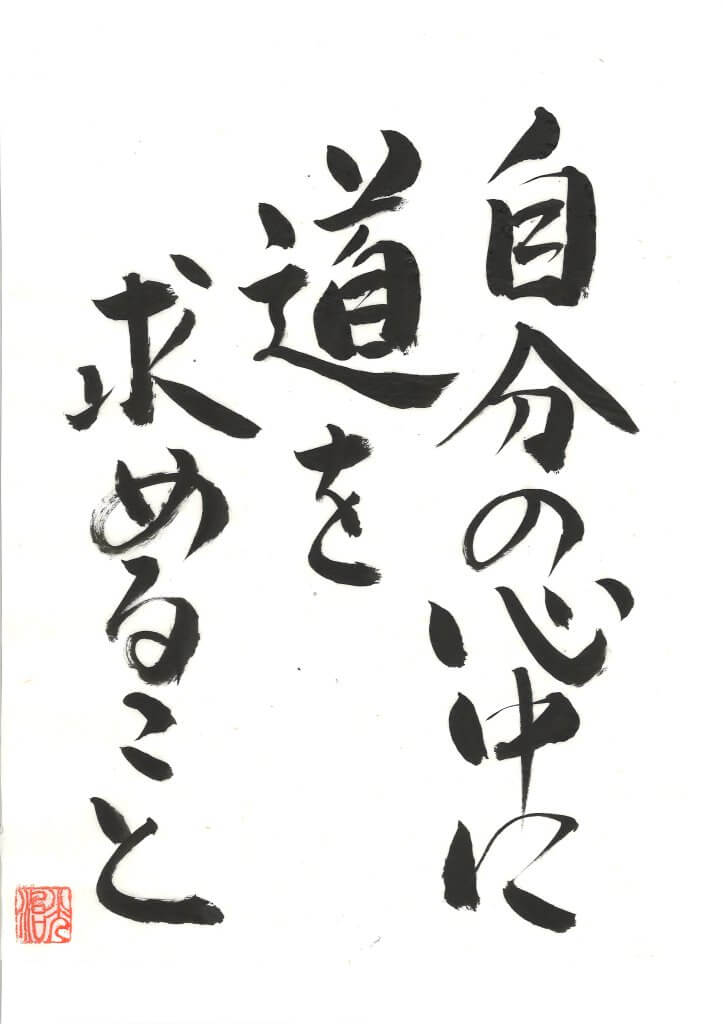 自分の心中に
道を
求めること